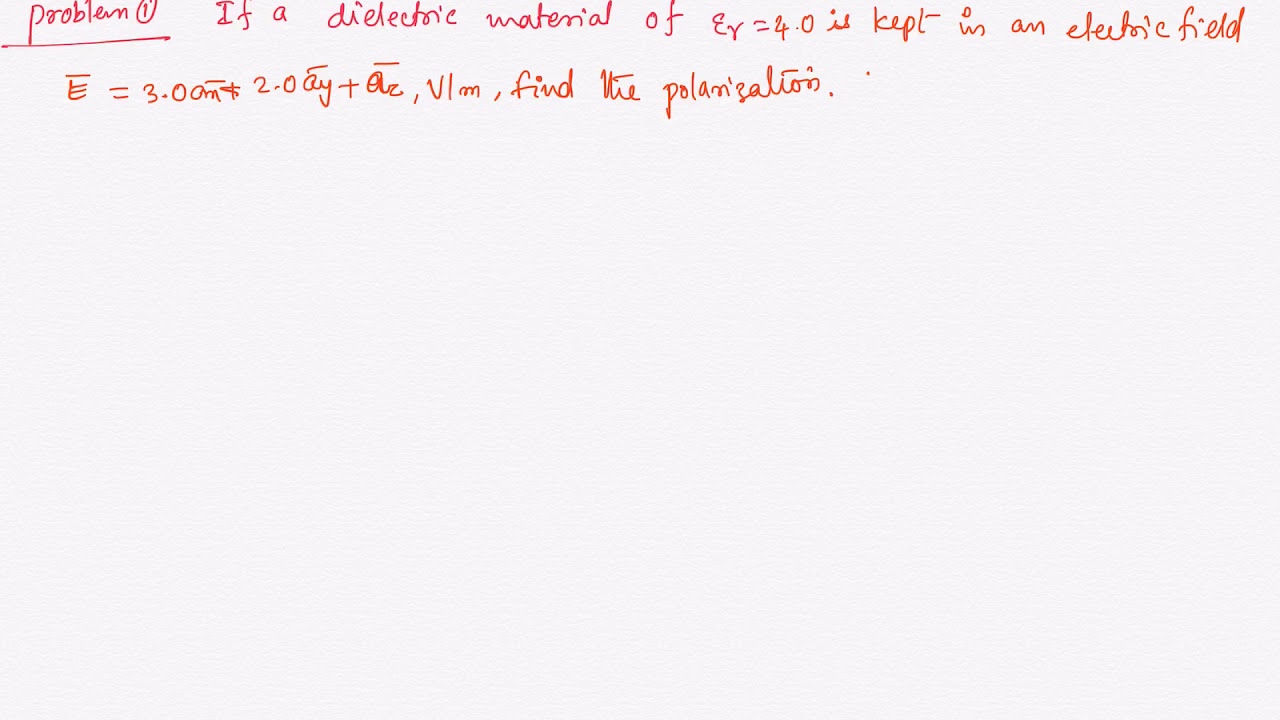 Problem ① If a dielectric material of εr = 4.0 is kept in an electric field
E̅ = 3.0a̅x + 2.0a̅y + a̅z, V/m, find the polarization.